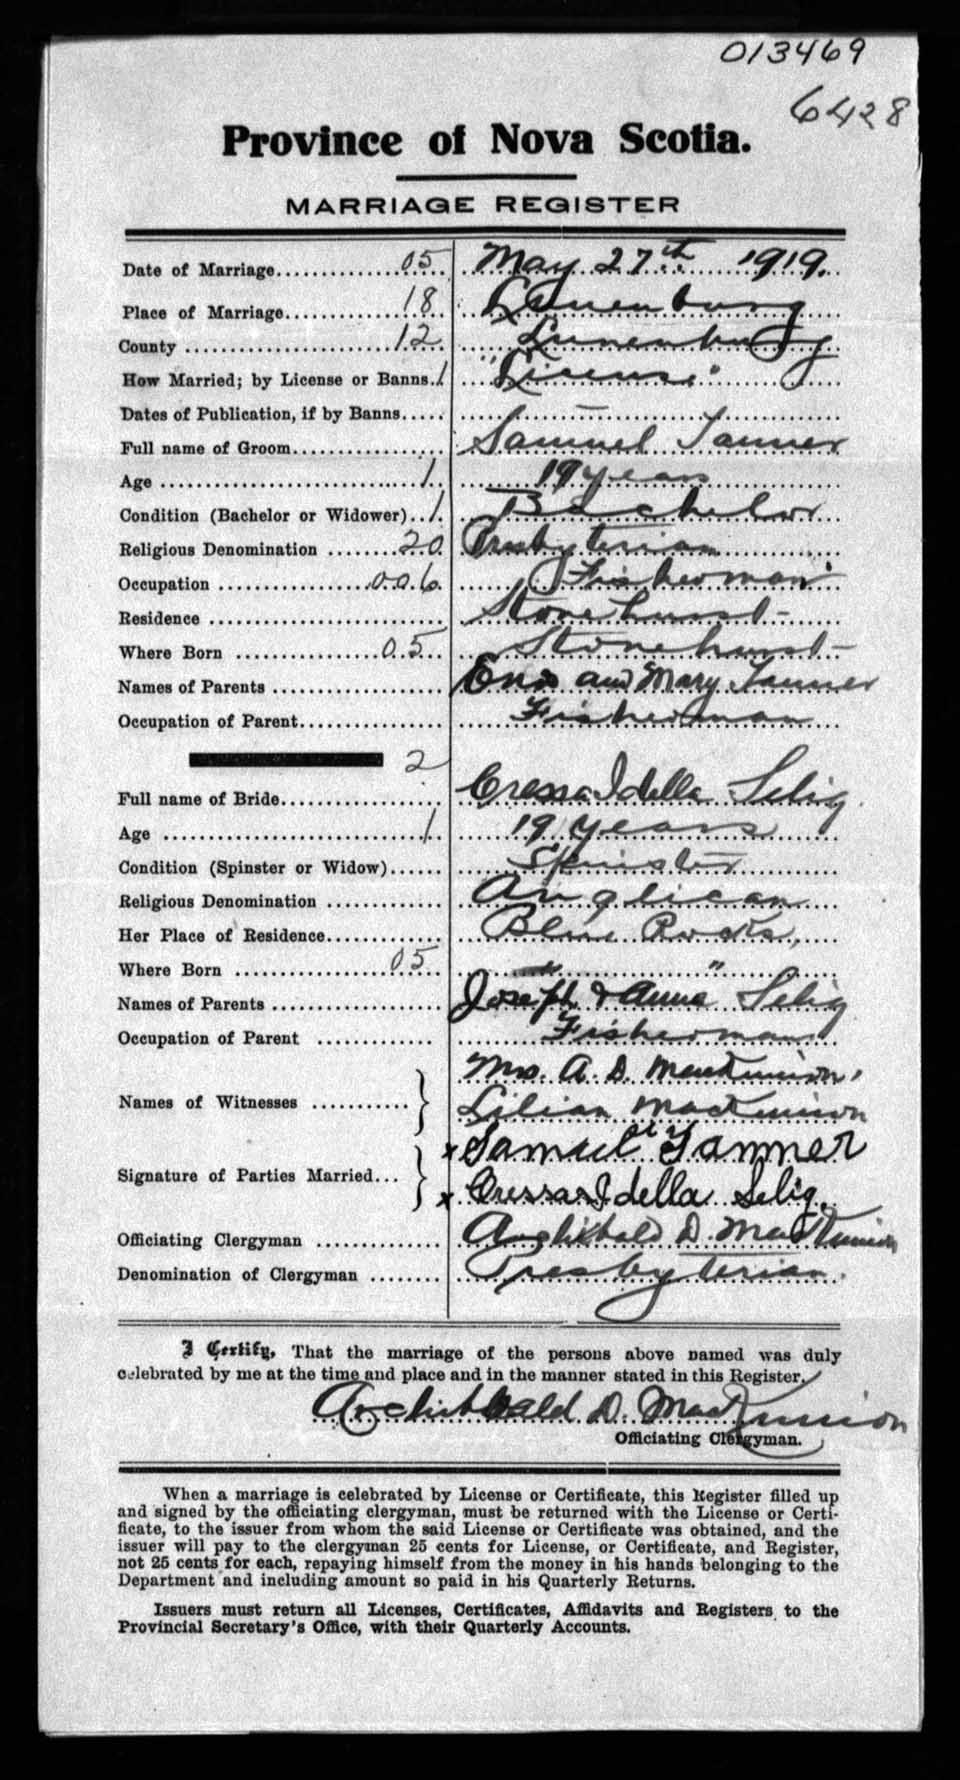 013469
6428
Province of Nova Scotia.
MARRIAGE REGISTER
Date of Marriage.................05.. May 27th. 1919.
Place of Marriage...............18.. Lunenburg
County .......................12. Lunenburg
How Married; by License or Banns.1 "License"
Dates of Publication, if by Banns..... —
Full name of Groom................. Samuel Tanner
Age ...........................1. 19 years
Condition (Bachelor or Widower)..1. Bachelor
Religious Denomination .......20. Presbyterian
Occupation ...............006. Fisherman
Residence .......................... Stonehurst-
Where Born ...............05.. Stonehurst-
Names of Parents ................... and Mary Tanner
Occupation of Parent................ Fisherman
2
Full name of Bride.................. Cressa Idella Selig.
Age ..........................1 19 years
Condition (Spinster or Widow)...... Spinster
Religious Denomination ............. Anglican
Her Place of Residence............. Blue Rocks,
Where Born ...............05.. " "
Names of Parents .................... Joseph & Anna Selig
Occupation of Parent ............. Fisherman
Mrs. A. D. MacKinnon,
Names of Witnesses ...........
Lilian MacKinnon
x Samuel Tanner
Signature of Parties Married...
x Cressa Idella Selig.
Officiating Clergyman .............. Archibald D. MacKinnon
Denomination of Clergyman ........ Presbyterian.
I Certify, That the marriage of the persons above named was duly
celebrated by me at the time and place and in the manner stated in this Register.
Archibald D. MacKinnon
Officiating Clergyman.
When a marriage is celebrated by License or Certificate, this Register filled up
and signed by the officiating clergyman, must be returned with the License or Certi-
ficate, to the issuer from whom the said License or Certificate was obtained, and the
issuer will pay to the clergyman 25 cents for License, or Certificate, and Register,
not 25 cents for each, repaying himself from the money in his hands belonging to the
Department and including amount so paid in his Quarterly Returns.
Issuers must return all Licenses, Certificates, Affidavits and Registers to the
Provincial Secretary's Office, with their Quarterly Accounts.